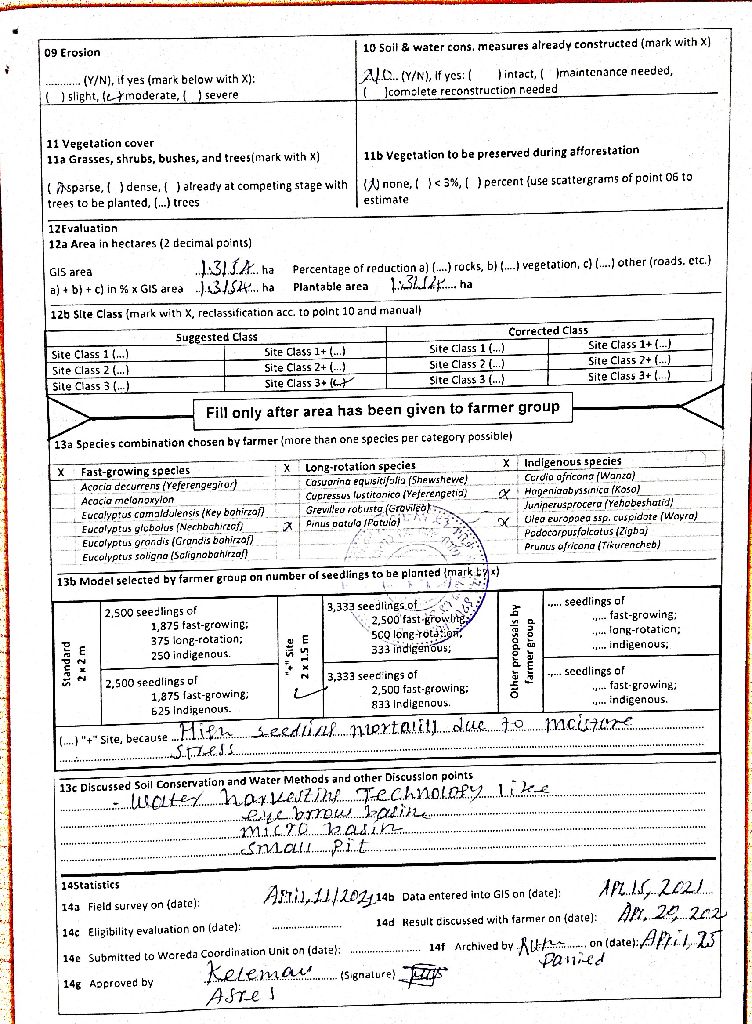 09 Erosion
............ (Y/N), if yes (mark below with X):
( ) slight, (✓) moderate, ( ) severe
10 Soil & water cons. measures already constructed (mark with X)
No.. (Y/N), if yes: ( ) intact, ( ) maintenance needed,
( ) complete reconstruction needed
11 Vegetation cover
11a Grasses, shrubs, bushes, and trees(mark with X)
(X) sparse, ( ) dense, ( ) already at competing stage with
trees to be planted, (...) trees
11b Vegetation to be preserved during afforestation
(X) none, ( ) < 3%, ( ) percent (use scattergrams of point 06 to
estimate
12Evaluation
12a Area in hectares (2 decimal points)
GIS area ha Percentage of reduction a) (....) rocks, b) (....) vegetation, c) (....) other (roads. etc.)
a) + b) + c) in % x GIS area ha Plantable area ha
12b Site Class (mark with X, reclassification acc. to point 10 and manual)
Suggested Class Corrected Class
Site Class 1 (...) Site Class 1+ (...) Site Class 1 (...) Site Class 1+ (...)
Site Class 2 (...) Site Class 2+ (...) Site Class 2 (...) Site Class 2+ (...)
Site Class 3 (...) Site Class 3+ (✓) Site Class 3 (...) Site Class 3+ (...)
Fill only after area has been given to farmer group
13a Species combination chosen by farmer (more than one species per category possible)
X Fast-growing species X Long-rotation species X Indigenous species
Acacia decurrens (Yeferengegirar) Casuarina equisitifolia (Shewshewe) Cordia africana (Wanza)
Acacia melanoxylon Cupressus lustitanica (Yeferengetid) X Hageniaabyssinica (Koso)
Eucalyptus camaldulensis (Key bahirzaf) Grevillea robusta (Gravilea) Juniperusprocera (Yehabeshatid)
Eucalyptus globulus (Nechbahirzaf) X Pinus patula (Patula) X Olea europaea ssp. cuspidate (Wayra)
Eucalyptus grandis (Grandis bahirzaf) Podocarpusfalcatus (Zigba)
Eucalyptus saligna (Salignabahirzaf) Prunus africana (Tikurencheb)
13b Model selected by farmer group on number of seedlings to be planted (mark by x)
Standard
2 x 2 m
2,500 seedlings of
1,875 fast-growing;
375 long-rotation;
250 indigenous.
2,500 seedlings of
1,875 fast-growing;
625 Indigenous.
"+" Site
2 x 1.5 m
✓
3,333 seedlings of
2,500 fast-growing,
500 long-rotation,
333 indigenous;
3,333 seedlings of
2,500 fast-growing;
833 Indigenous.
Other proposals by
farmer group
..... seedlings of
..... fast-growing;
..... long-rotation;
..... indigenous;
..... seedlings of
..... fast-growing;
..... indigenous.
(....) "+" Site, because High seedling mortality due to moisture
stress
13c Discussed Soil Conservation and Water Methods and other Discussion points
- Water harvesting Technology like
eye brow basin
micro basin
small pit
14Statistics
14a Field survey on (date): April, 11/2021 14b Data entered into GIS on (date): Apr. 15, 2021
14c Eligibility evaluation on (date): .................... 14d Result discussed with farmer on (date): Apr. 20, 202
14e Submitted to Woreda Coordination Unit on (date): .................... 14f Archived by on (date): April, 25
14g Approved by (Signature)